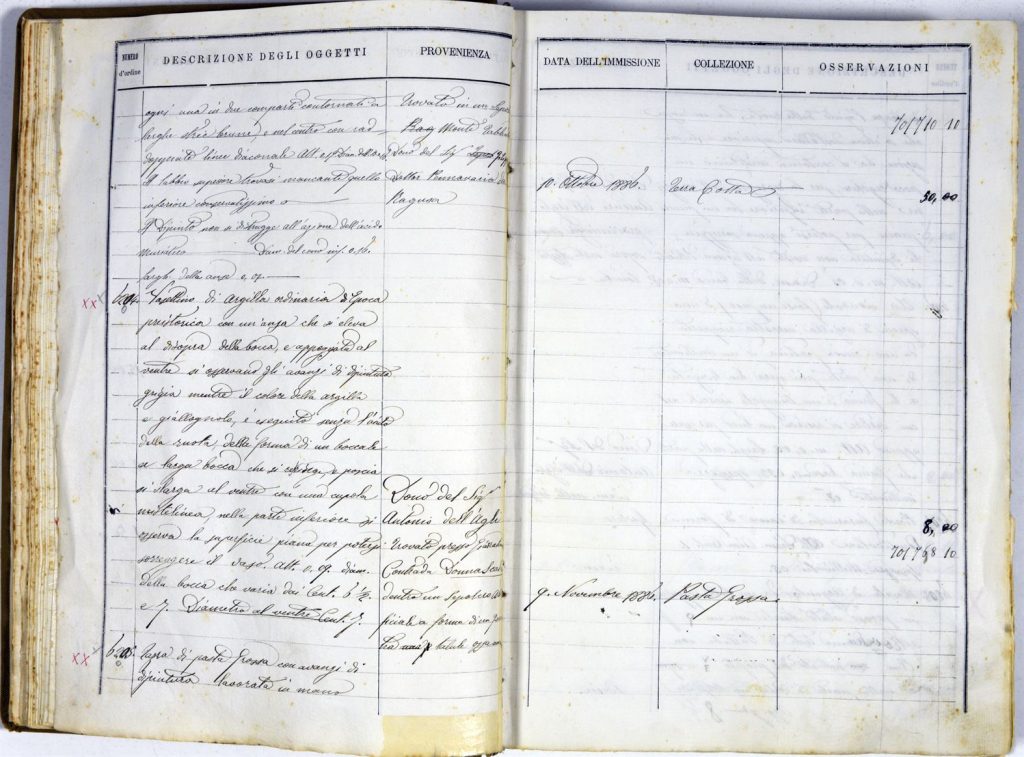 NUMERO d'ordine
DESCRIZIONE DEGLI OGGETTI
PROVENIENZA
ogni una in due comparti contornati da
larghe strie brune, e nel centro con
linee diaconale Alt.
Il labbro superiore trovasi mancante quello
inferiore conservatissimo
Il Dipinto non si distrugge all'azione dell'acido
muriatico Diam. del cond inf. 0,16.
largh. della anse 0,07.
Trovato in un
Monte
Dono del Sig.r
Dottor Pennavaria da
Ragusa
xx
Vasettino, di argilla ordinaria d'Epoca
preistorica con un'anza che si eleva
al disopra della bocca, e appoggiata al
ventre si osservano gli avanzi di dipintura
grigia mentre il colore della argilla
e giallagnolo, é eseguito senza l'aiuto
della ruota, della forma di un boccale
a larga bocca che si restringe, e poscia
si slarga al ventre con una cupola
mistelinea nella parte inferiore si
osserva la superficie piana per potersi
sorreggere il vaso. Alt. 0,09. diam.
della bocca che varia dai Cent. 6 ½
e 7. Diametro al ventre Cent. 7.
Dono del Sig.r
Antonio dell'Agli
trovato presso
Contrada Donna
dentro un Sepolcro
a forma di un
xx
Tazza di pasta Grossa con avanzi di
dipintura lavorata in mano
DATA DELL'IMMISSIONE
COLLEZIONE
OSSERVAZIONI
701710 10
10. Ottobre 1886.
Terra Cotta
50,00
8,00
701768 10
9. Novembre 1886.
Pasta Grossa